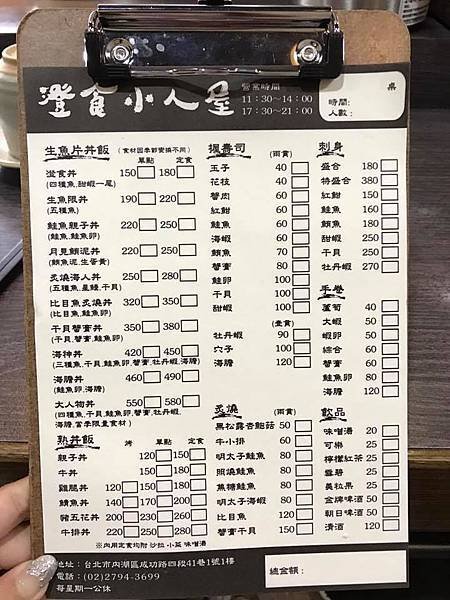 澄食小人屋
營業時間
11:30～14:00
17:30～21:00
桌
時間:
人數:
生魚片丼飯 (食材因季節變換不同)
單點 定食
澄食丼 150 180
(四種魚,甜蝦一尾)
生魚限丼 190 220
(五種魚)
鮭魚親子丼 220 250
(鮭魚,鮭魚卵)
月見鮪泥丼 220 250
(鮪魚泥,生蛋黃)
炙燒海人丼 250 280
(五種魚,星鰻,干貝)
比目魚炙燒丼 320 350
(比目魚,鮭魚卵)
干貝蟹膏丼 350 380
(干貝,蟹膏,鮭魚卵)
海神丼 420 450
(三種魚,干貝,鮭魚卵,蟹膏,牡丹蝦,海膽)
海膽丼 460 490
(鮭魚卵,海膽)
大人物丼 550 580
(四種魚,干貝,鮭魚卵,蟹膏,牡丹蝦,
海膽,當季限量食材)
熟丼飯 烤 單點 定食
親子丼 120 150
牛丼 150 180
雞腿丼 120 150 180
鯖魚丼 140 170 200
豬五花丼 200 230 260
牛排丼 220 250 280
※內用定食均附 沙拉 小菜 味噌湯
握壽司 (兩貫)
玉子 40
花枝 40
蟹肉 60
紅魽 60
鮭魚 60
海蝦 60
鮪魚 70
蟹膏 80
鮭卵 100
干貝 100
甜蝦 100
(壹貫)
牡丹蝦 90
穴子 100
海膽 120
炙燒 (兩貫)
黑松露杏鮑菇 50
牛小排 60
明太子鮭魚 80
照燒鮭魚 80
焦糖鮭魚 80
明太子海蝦 80
比目魚 120
蟹膏干貝 150
刺身
盛合 180
特盛合 380
紅魽 150
鮭魚 160
鮪魚 180
甜蝦 250
干貝 250
牡丹蝦 270
手卷
蘆筍 40
大蝦 50
蝦卵 50
綜合 60
蟹膏 60
鮭魚卵 80
海膽 120
飲品
味噌湯 20
可樂 25
檸檬紅茶 25
雪碧 25
美粒果 25
金牌啤酒 50
朝日啤酒 50
清酒 120
地址:台北市內湖區成功路四段41巷1號1樓
電話:(02)2794-3699
每星期一公休
總金額: